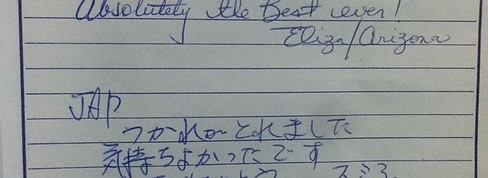 Absolutely the Best ever!
Eliza/Arizona
JAP
つかれがとれました
気持ちよかったです